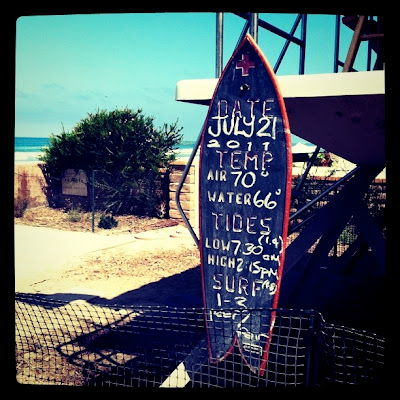 DATE
JULY 21
2011
TEMP
AIR 70°
WATER 66°
TIDES
LOW 7:30 am
HIGH 2:15pm
SURF
1-3